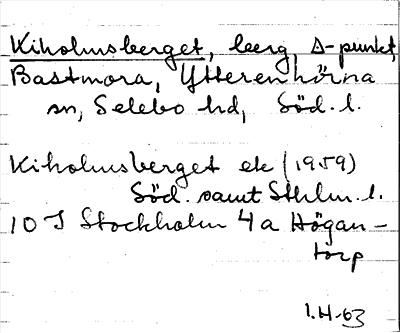 Kiholmsberget, berg, Δ-punkt,
Bastmora, Ytterenhörna
sn, Selebo hd, Söd. l.
Kiholmsberget ek (1959)
Söd. samt Sthlm. l.
10 I Stockholm 4 a Högan-
torp
I.H-63